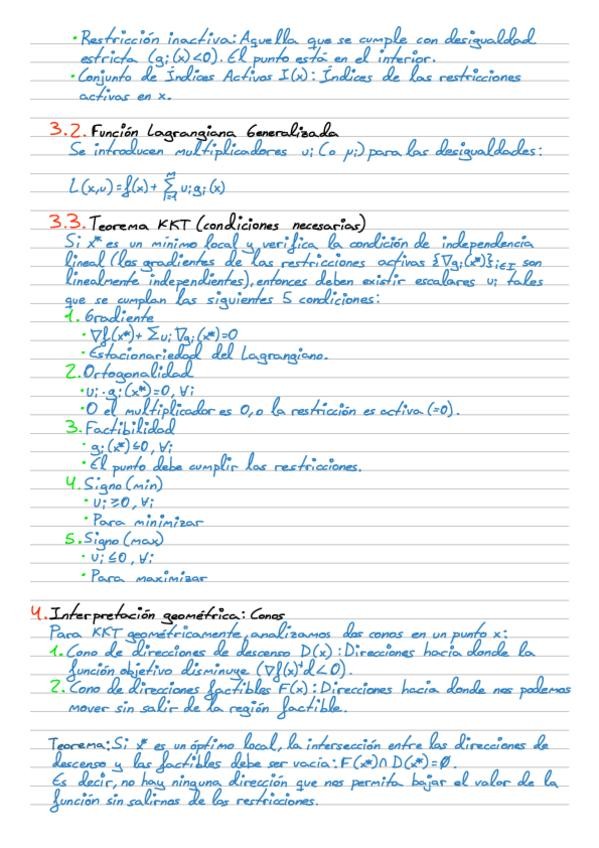 · Restricción inactiva: Aquella que se cumple con desigualdad
estricta (gᵢ(x)<0). El punto está en el interior.
· Conjunto de Índices Activos I(x): Índices de las restricciones
activas en x.
3.2. Función Lagrangiana Generalizada
Se introducen multiplicadores uᵢ (o μᵢ) para las desigualdades:
L(x,u) = f(x) + Σᵢ₌₁ᵐ uᵢgᵢ(x)
3.3. Teorema KKT (condiciones necesarias)
Si x* es un mínimo local y verifica la condición de independencia
lineal (los gradientes de las restricciones activas {∇gᵢ(x*)}ᵢ∈I son
linealmente independientes), entonces deben existir escalares uᵢ tales
que se cumplan las siguientes 5 condiciones:
1. Gradiente
· ∇f(x*) + Σuᵢ∇gᵢ(x*)=0
· Estacionariedad del Lagrangiano.
2. Ortogonalidad
· uᵢ·gᵢ(x*)=0, ∀ᵢ
· O el multiplicador es 0, o la restricción es activa (=0).
3. Factibilidad
· gᵢ(x*)≤0, ∀ᵢ
· El punto debe cumplir las restricciones.
4. Signo (min)
· uᵢ≥0, ∀ᵢ
· Para minimizar
5. Signo (max)
· uᵢ≤0, ∀ᵢ
· Para maximizar
4. Interpretación geométrica: Conos
Para KKT geométricamente, analizamos dos conos en un punto x:
1. Cono de direcciones de descenso D(x): Direcciones hacia donde la
función objetivo disminuye (∇f(x)ᵗd<0).
2. Cono de direcciones factibles F(x): Direcciones hacia donde nos podemos
mover sin salir de la región factible.
Teorema: Si x* es un óptimo local, la intersección entre las direcciones de
descenso y las factibles debe ser vacía: F(x*)∩D(x*)=∅.
Es decir, no hay ninguna dirección que nos permita bajar el valor de la
función sin salirnos de las restricciones.